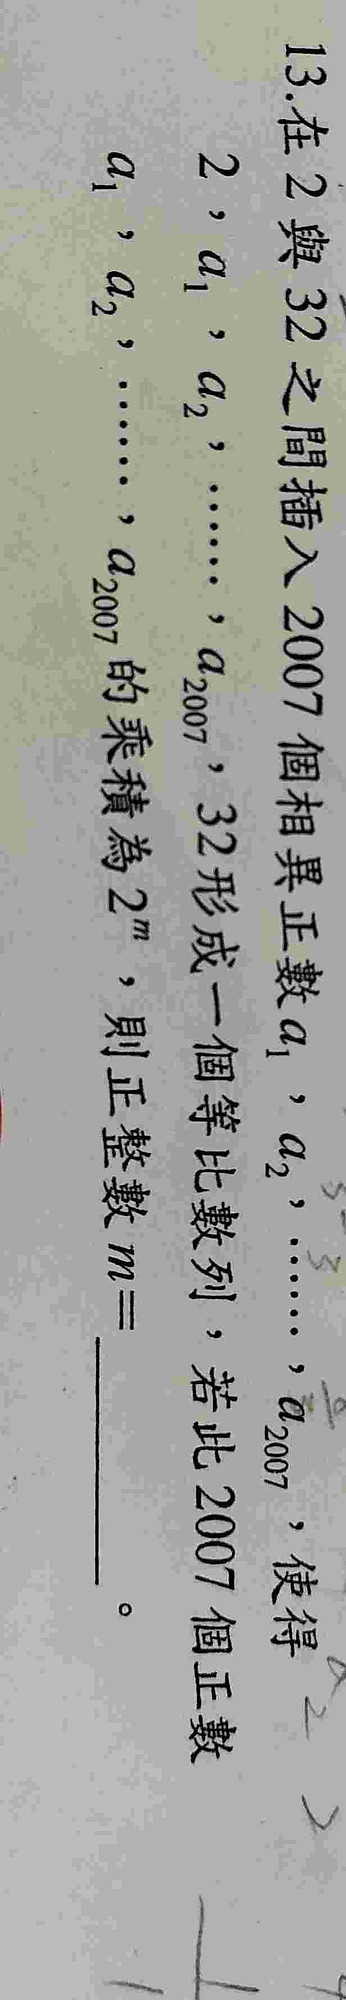 13.在 2 與 32 之間插入 2007 個相異正數 a₁，a₂，……，a₂₀₀₇，使得
2，a₁，a₂，……，a₂₀₀₇，32 形成一個等比數列，若此 2007 個正數
a₁，a₂，……，a₂₀₀₇ 的乘積為 2ᵐ，則正整數 m=________。